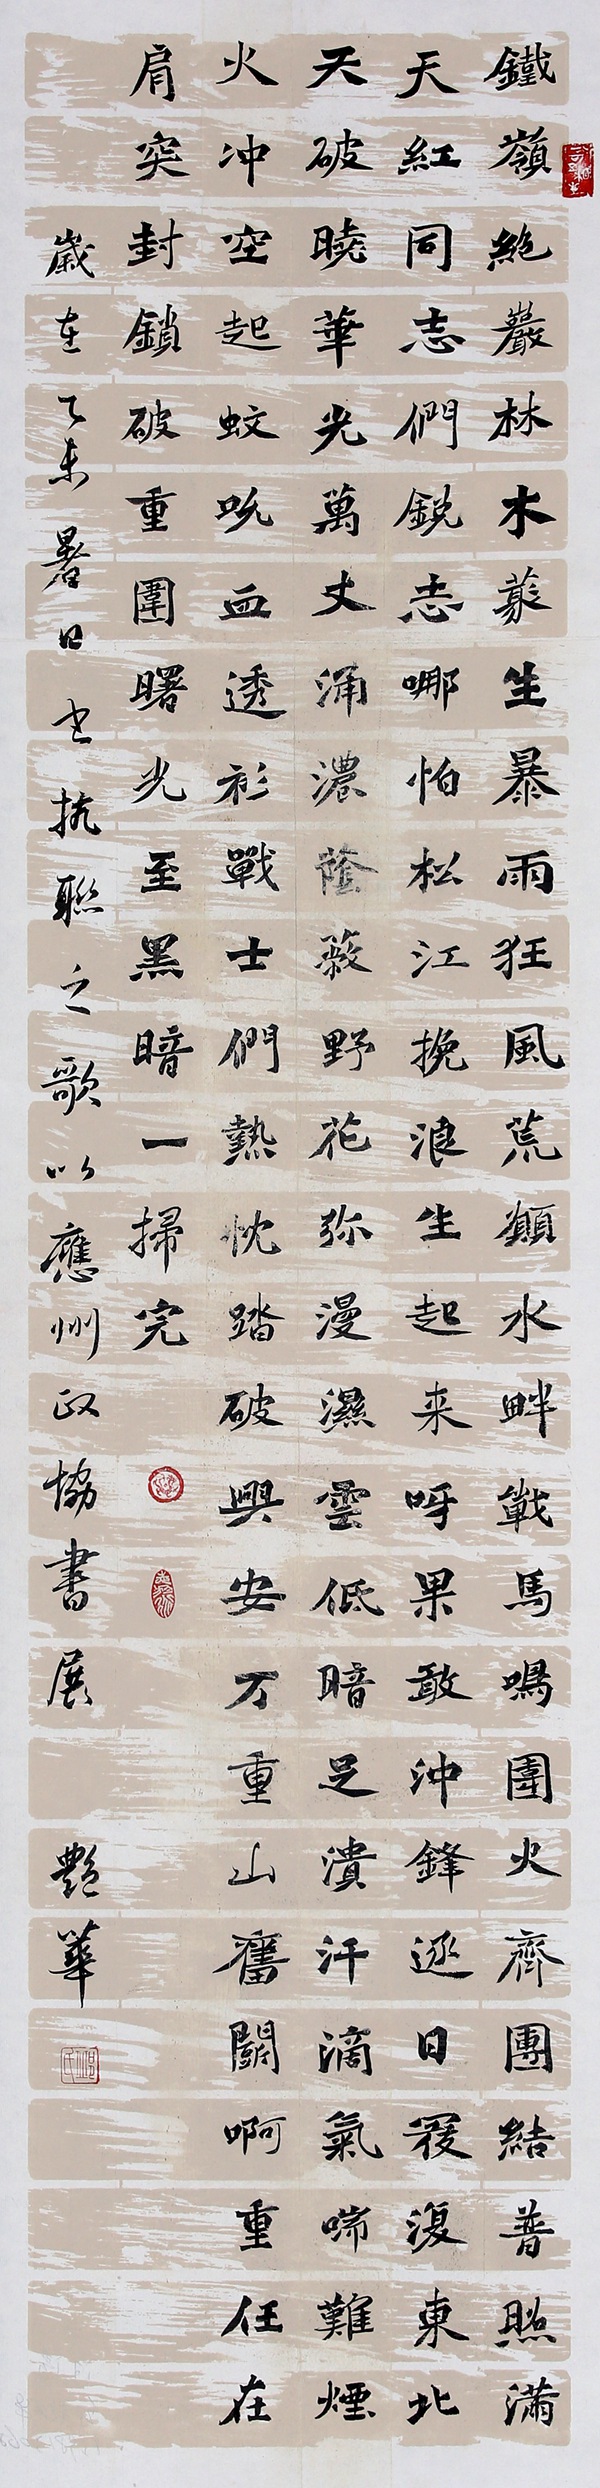 鐵嶺絶巖林木叢生暴雨狂風荒顛水畔戰馬鳴圍火齊團結普照滿
天紅同志們鋭志哪怕松江挽浪生起来呀果敢沖鋒逐日寇復東北
天破曉華光萬丈涌濃蔭蔽野花弥漫濕雲低暗足潰汗滴氣喘難煙
火冲空起蚊吮血透衫戰士們熱忱踏破興安万重山奮鬭啊重任在
肩突封鎖破重圍曙光至黑暗一掃完
歲在乙未暑日書抗聯之歌以應州政協書展
艷華